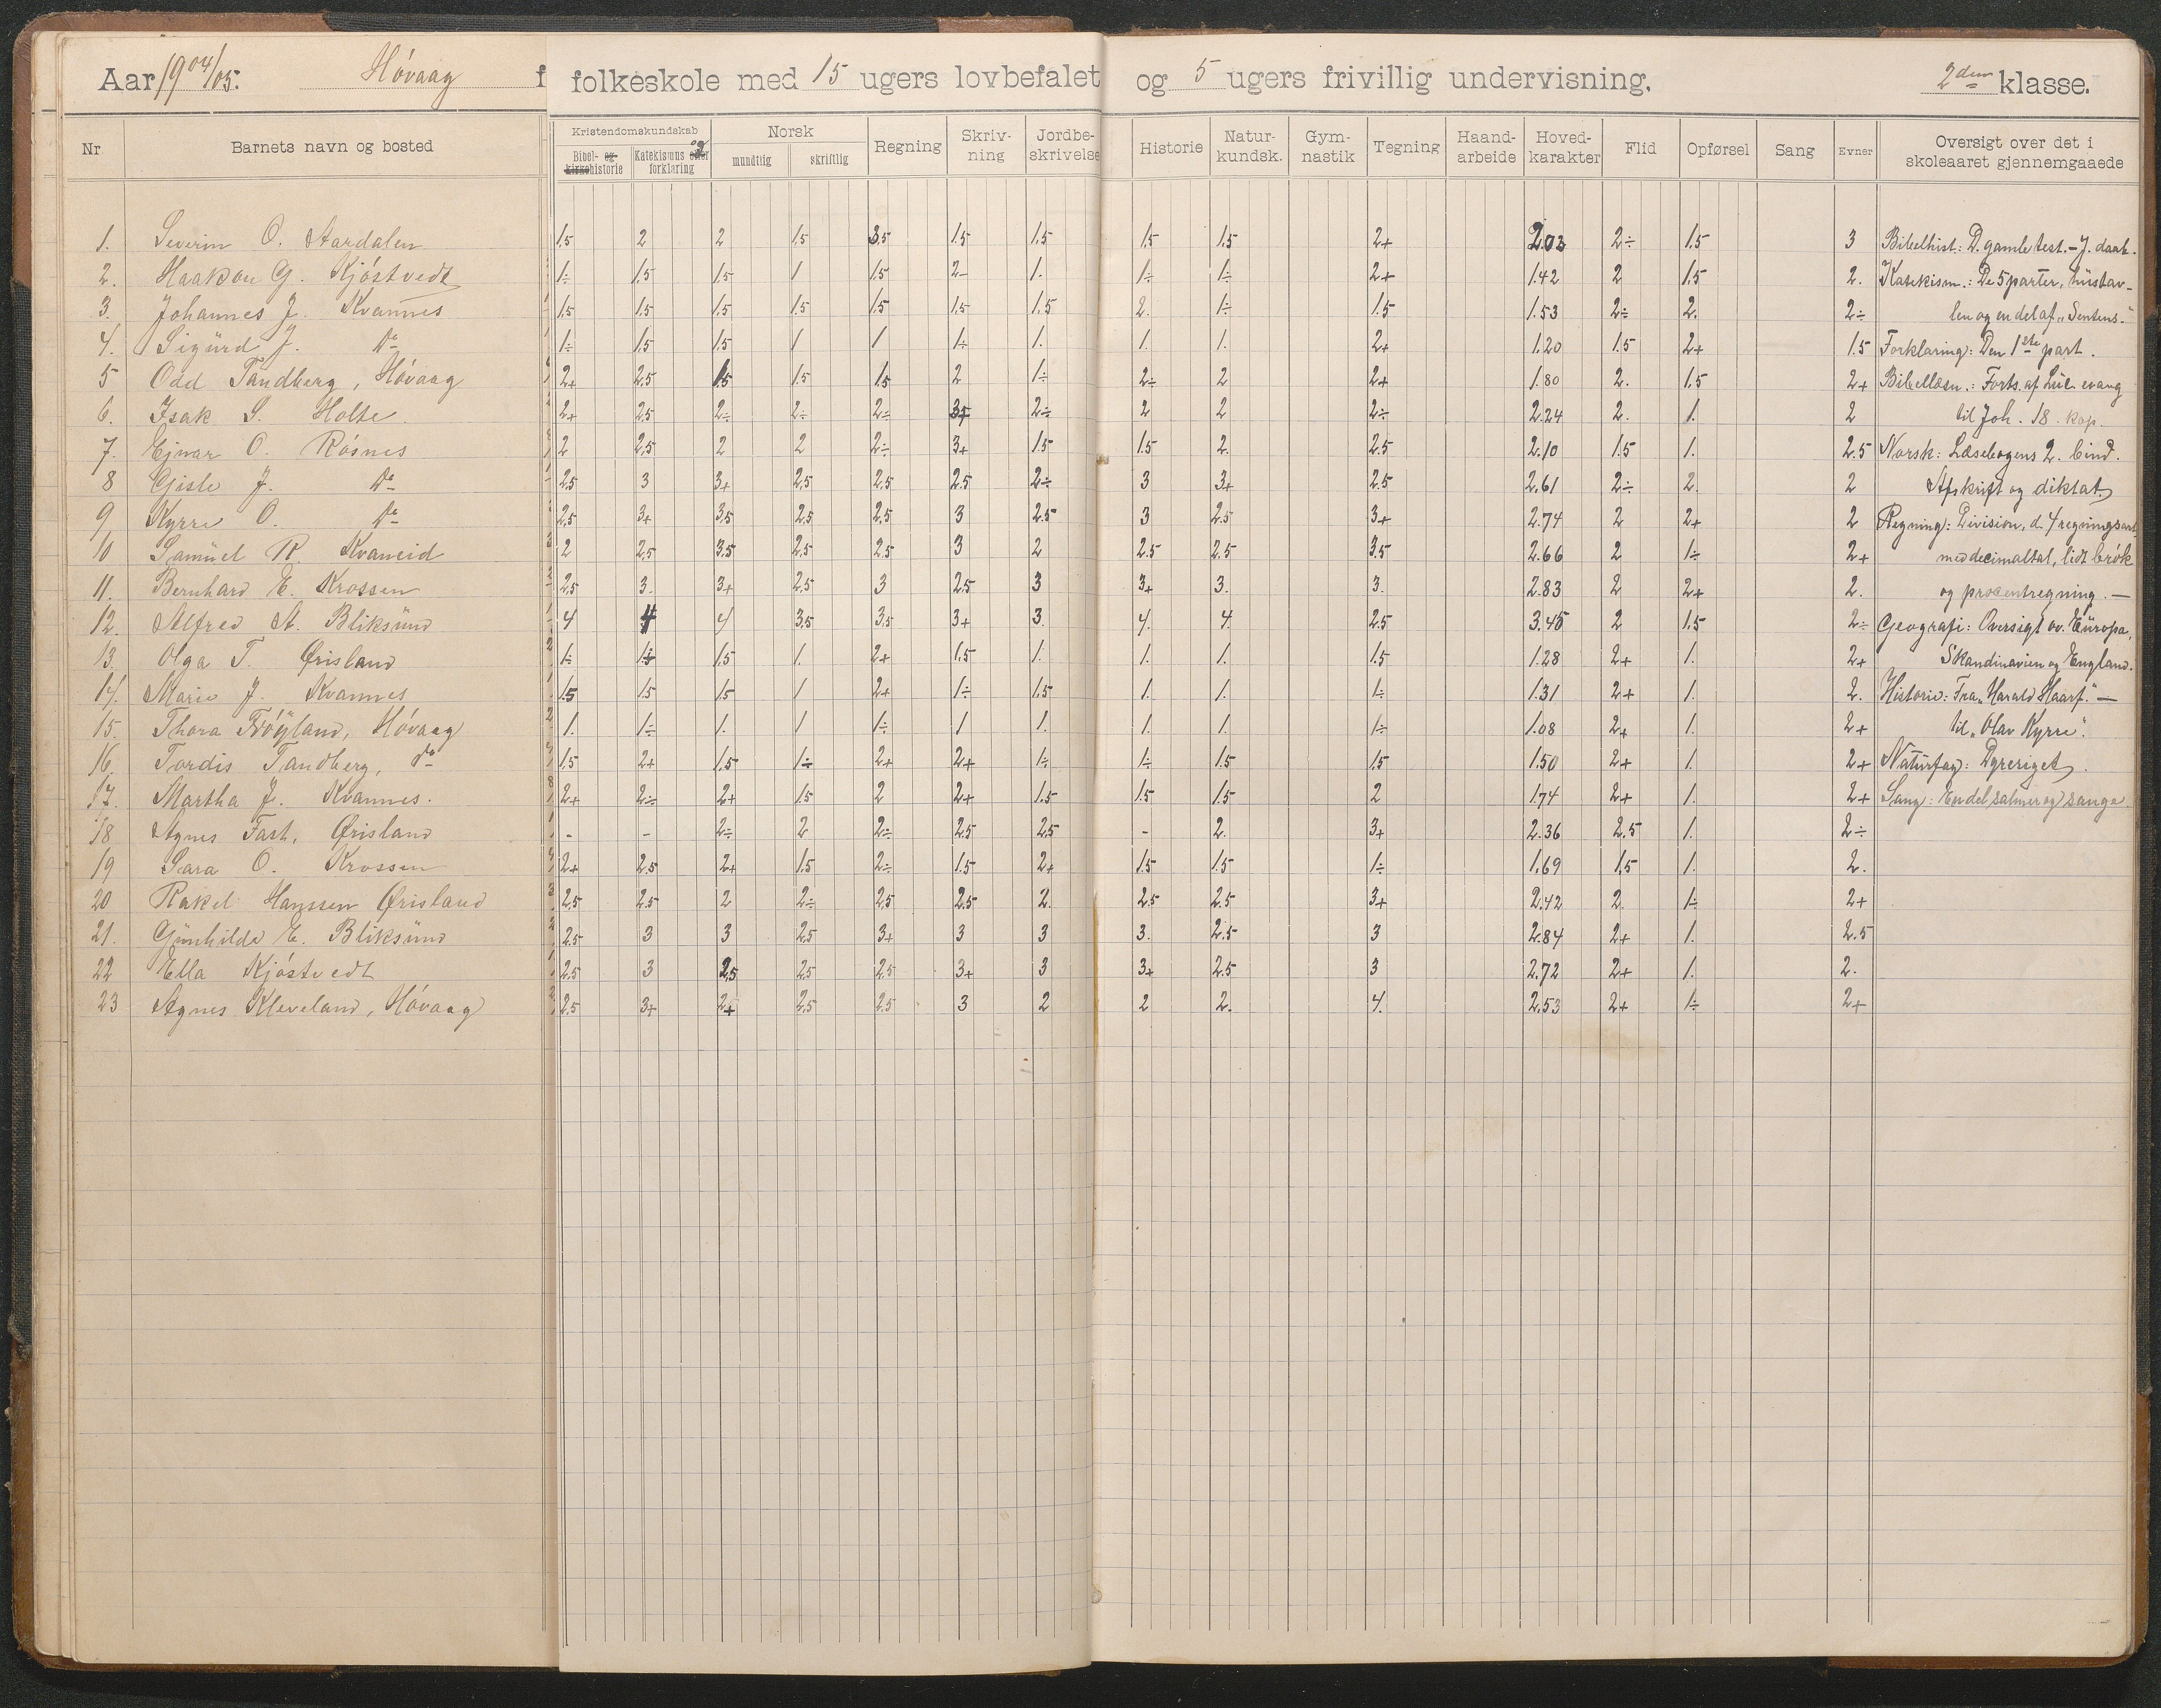 Aar 1904/05. Hövaag folkeskole med 15 ugers lovbefalet og 5 ugers frivillig undervisning. 2den klasse.
Nr Barnets navn og bosted Kristendomskundskab Norsk Regning Skriv-ning Jordbe-skrivelse Historie Natur-kundsk. Gym-nastik Tegning Haand-arbeide Hoved-karakter Flid Opførsel Sang Evner Oversigt over det i skoleaaret gjennemgaaede
Bibel- og kirkehistorie Katekismus eller og forklaring mundtlig skriftlig
1. Severin O. Aardalen 1.5 2 2 1.5 3.5 1.5 1.5 1.5 1.5 2+ 2.03 2÷ 1.5 3 Bibelhist.: D. gamle test. - J. daab.
2. Haakon G. Kjöstvedt 1÷ 1.5 1.5 1 1.5 2- 1. 1÷ 1÷ 2+ 1.42 2 1.5 2. Katekism.: De 5 parter, hüstav-
3. Johannes J. Kvannes 1.5 1.5 1.5 1.5 1.5 1.5 1.5 2. 1÷ 1.5 1.53 2÷ 2. 2÷ len og en del af „Sentens.“
4. Sigürd J. do 1÷ 1.5 1.5 1 1 1÷ 1. 1. 1. 2+ 1.20 1.5 2+ 1.5 Forklaring: Den 1ste part.
5 Odd Tandberg, Hövaag 2+ 2.5 1.5 1.5 1.5 2 1÷ 2÷ 2 2+ 1.80 2. 1.5 2+ Bibellæsn.: Forts. af Lük. evang
6. Isak S. Holte. 2+ 2.5 2÷ 2÷ 2÷ 3+ 2÷ 2 2 2÷ 2.24 2. 1. 2 til Joh. 18. kap.
7. Ejnar O. Rösnes 2 2.5 2 2 2÷ 3+ 1.5 1.5 2. 2.5 2.10 1.5 1. 2.5 Norsk: Læsebogens 2. bind.
8 Gisle J. do 2.5 3 3+ 2.5 2.5 2.5 2÷ 3 3+ 2.5 2.61 2÷ 2. 2 Afskrift og diktat
9 Kyrre O. do 2.5 3+ 3.5 2.5 2.5 3 2.5 3 2.5 3+ 2.74 2 2+ 2 Regning: Division, d. 4 regningsart.
10 Samüel R. Kvaneid 2 2.5 3.5 2.5 2.5 3 2 2.5 2.5 3.5 2.66 2 1÷ 2+ med decimaltal, lidt brök
11. Bernhard E. Krossen 2.5 3. 3+ 2.5 3 2.5 3 3+ 3. 3. 2.83 2 2+ 2. og procentregning. —
12. Alfred A. Bliksünd 4 4 4 3.5 3.5 3+ 3 4. 4. 2.5 3.45 2 1.5 2÷ Geografi: Oversigt ov. Eüropa,
13. Olga T. Ørisland 1÷ 1÷ 1.5 1. 2+ 1.5 1. 1. 1. 1.5 1.28 2+ 1. 2+ Skandinavien og England.
14. Marie J. Kvannes 1.5 1.5 1.5 1 2+ 1÷ 1.5 1. 1. 1÷ 1.31 2+ 1. 2. Historie: Fra „Harald Haarf.“ —
15. Thora Tröyland, Hövaag 1. 1÷ 1. 1 1÷ 1 1. 1. 1. 1÷ 1.08 2+ 1. 2+ til „Olav Kyrre“.
16. Tordis Tandberg, do 1.5 2+ 1.5 1÷ 2+ 2+ 1÷ 1÷ 1.5 1.5 1.50 2+ 1. 2+ Natürfag: Dyreriget.
17. Martha J. Kvannes. 2+ 2÷ 2+ 1.5 2 2+ 1.5 1.5 1.5 2 1.74 2+ 1. 2+ Sang: En del salmer og sange
18 Agnes Fast. Ørisland - - 2÷ 2 2÷ 2.5 2.5 - 2. 3+ 2.36 2.5 1. 2÷
19 Sara O. Krossen 2+ 2.5 2+ 1.5 2÷ 1.5 2+ 1.5 1.5 1÷ 1.69 1.5 1. 2.
20 Rakel Hanssen Ørisland 2.5 2.5 2 2÷ 2.5 2.5 2. 2.5 2.5 3+ 2.42 2. 1÷ 2+
21. Günhilde E. Bliksünd 2.5 3 3 2.5 3+ 3 3 3. 2.5 3 2.84 2+ 1. 2.5
22 Ella Kjöstvedt 2.5 3 2.5 2.5 2.5 3+ 3 3+ 2.5 3 2.72 2+ 1. 2.
23 Agnes Kleveland, Hövaag 2.5 3+ 2+ 2.5 2.5 3 2 2 2. 4. 2.53 2+ 1÷ 2+